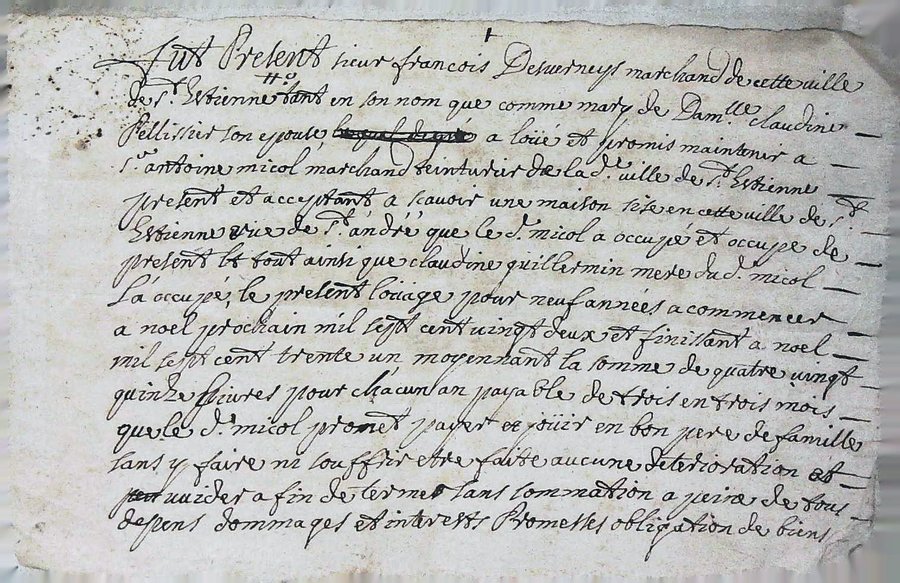 fut Present sieur francois Desverneys marchand de cette ville
de St. Estienne tant en son nom que comme mary de Damlle. claudine
Pellissier son epouse, a loüé et promis maintenir a
Sr. antoine micol marchand teinturier de lade. ville de St. Estienne
present et acceptant a scavoir une maison sise en cette ville de St.
Estienne rüe de St. andré que le d. micol a occupé et occupe de
present et tout ainsi que claudine guillermin mere du d. micol
La occupé, le present loüage pour neuf années a commencer
a noel prochain mil sept cent vingt deux et finissant a noel
mil sept cent trente un moyennant la somme de quatre vingt
quinze Livres pour chacun an payable de trois en trois mois
que le d. micol promet payer et joüir en bon pere de famille
sans y faire ni souffrir etre faite aucune deterioration et
vuider a fin de terme sans sommation a peine de tous
despens dommages et interests Promesses obligation de biens